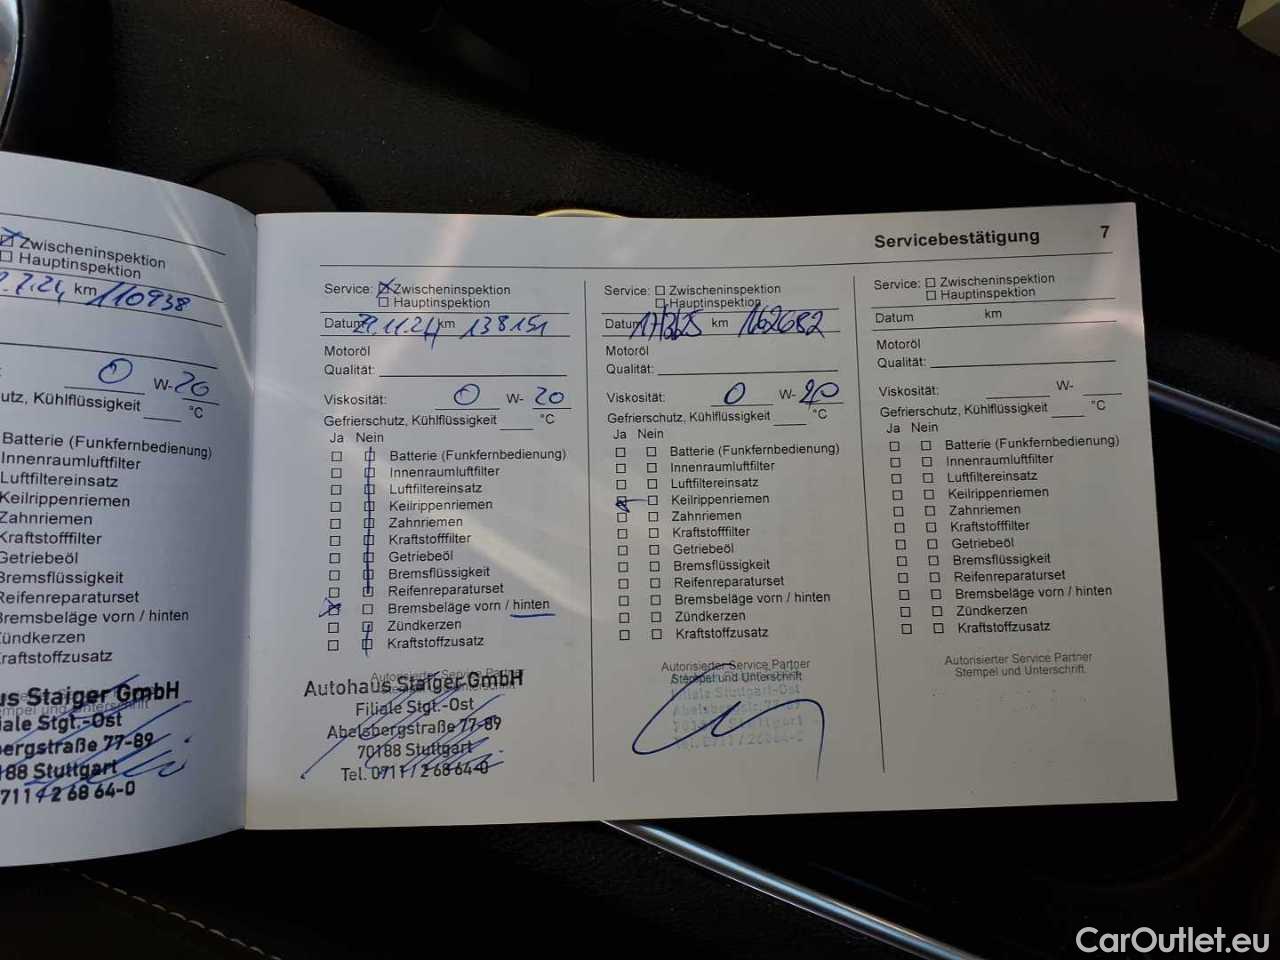 Zwischeninspektion
Hauptinspektion
.7.24 km 110938
0 W- 20
utz, Kühlflüssigkeit °C
Batterie (Funkfernbedienung)
Innenraumluftfilter
Luftfiltereinsatz
Keilrippenriemen
Zahnriemen
Kraftstofffilter
Getriebeöl
Bremsflüssigkeit
Reifenreparaturset
Bremsbeläge vorn / hinten
Zündkerzen
Kraftstoffzusatz
us Staiger GmbH
iale Stgt.-Ost
bergstraße 77-89
188 Stuttgart
711 / 2 68 64-0
Servicebestätigung 7
Service: Zwischeninspektion
Hauptinspektion
Datum .11.24 km 138151
Motoröl
Qualität:
Viskosität: 0 W- 20
Gefrierschutz, Kühlflüssigkeit °C
Ja Nein
Batterie (Funkfernbedienung)
Innenraumluftfilter
Luftfiltereinsatz
Keilrippenriemen
Zahnriemen
Kraftstofffilter
Getriebeöl
Bremsflüssigkeit
Reifenreparaturset
Bremsbeläge vorn / hinten
Zündkerzen
Kraftstoffzusatz
Autorisierter Service Partner
Autohaus Staiger GmbH
Filiale Stgt.-Ost
Abelsbergstraße 77-89
70188 Stuttgart
Tel. 0711 / 2 68 64-0
Service: Zwischeninspektion
Hauptinspektion
Datum km 162682
Motoröl
Qualität:
Viskosität: 0 W- 20
Gefrierschutz, Kühlflüssigkeit °C
Ja Nein
Batterie (Funkfernbedienung)
Innenraumluftfilter
Luftfiltereinsatz
Keilrippenriemen
Zahnriemen
Kraftstofffilter
Getriebeöl
Bremsflüssigkeit
Reifenreparaturset
Bremsbeläge vorn / hinten
Zündkerzen
Kraftstoffzusatz
Autorisierter Service Partner
Stempel und Unterschrift
Filiale Stuttgart-Ost
Abelsbergstr. 77-89
70188 Stuttgart
Tel. 0711 / 26864-0
Service: Zwischeninspektion
Hauptinspektion
Datum km
Motoröl
Qualität:
Viskosität: W-
Gefrierschutz, Kühlflüssigkeit °C
Ja Nein
Batterie (Funkfernbedienung)
Innenraumluftfilter
Luftfiltereinsatz
Keilrippenriemen
Zahnriemen
Kraftstofffilter
Getriebeöl
Bremsflüssigkeit
Reifenreparaturset
Bremsbeläge vorn / hinten
Zündkerzen
Kraftstoffzusatz
Autorisierter Service Partner
Stempel und Unterschrift
CarOutlet.eu